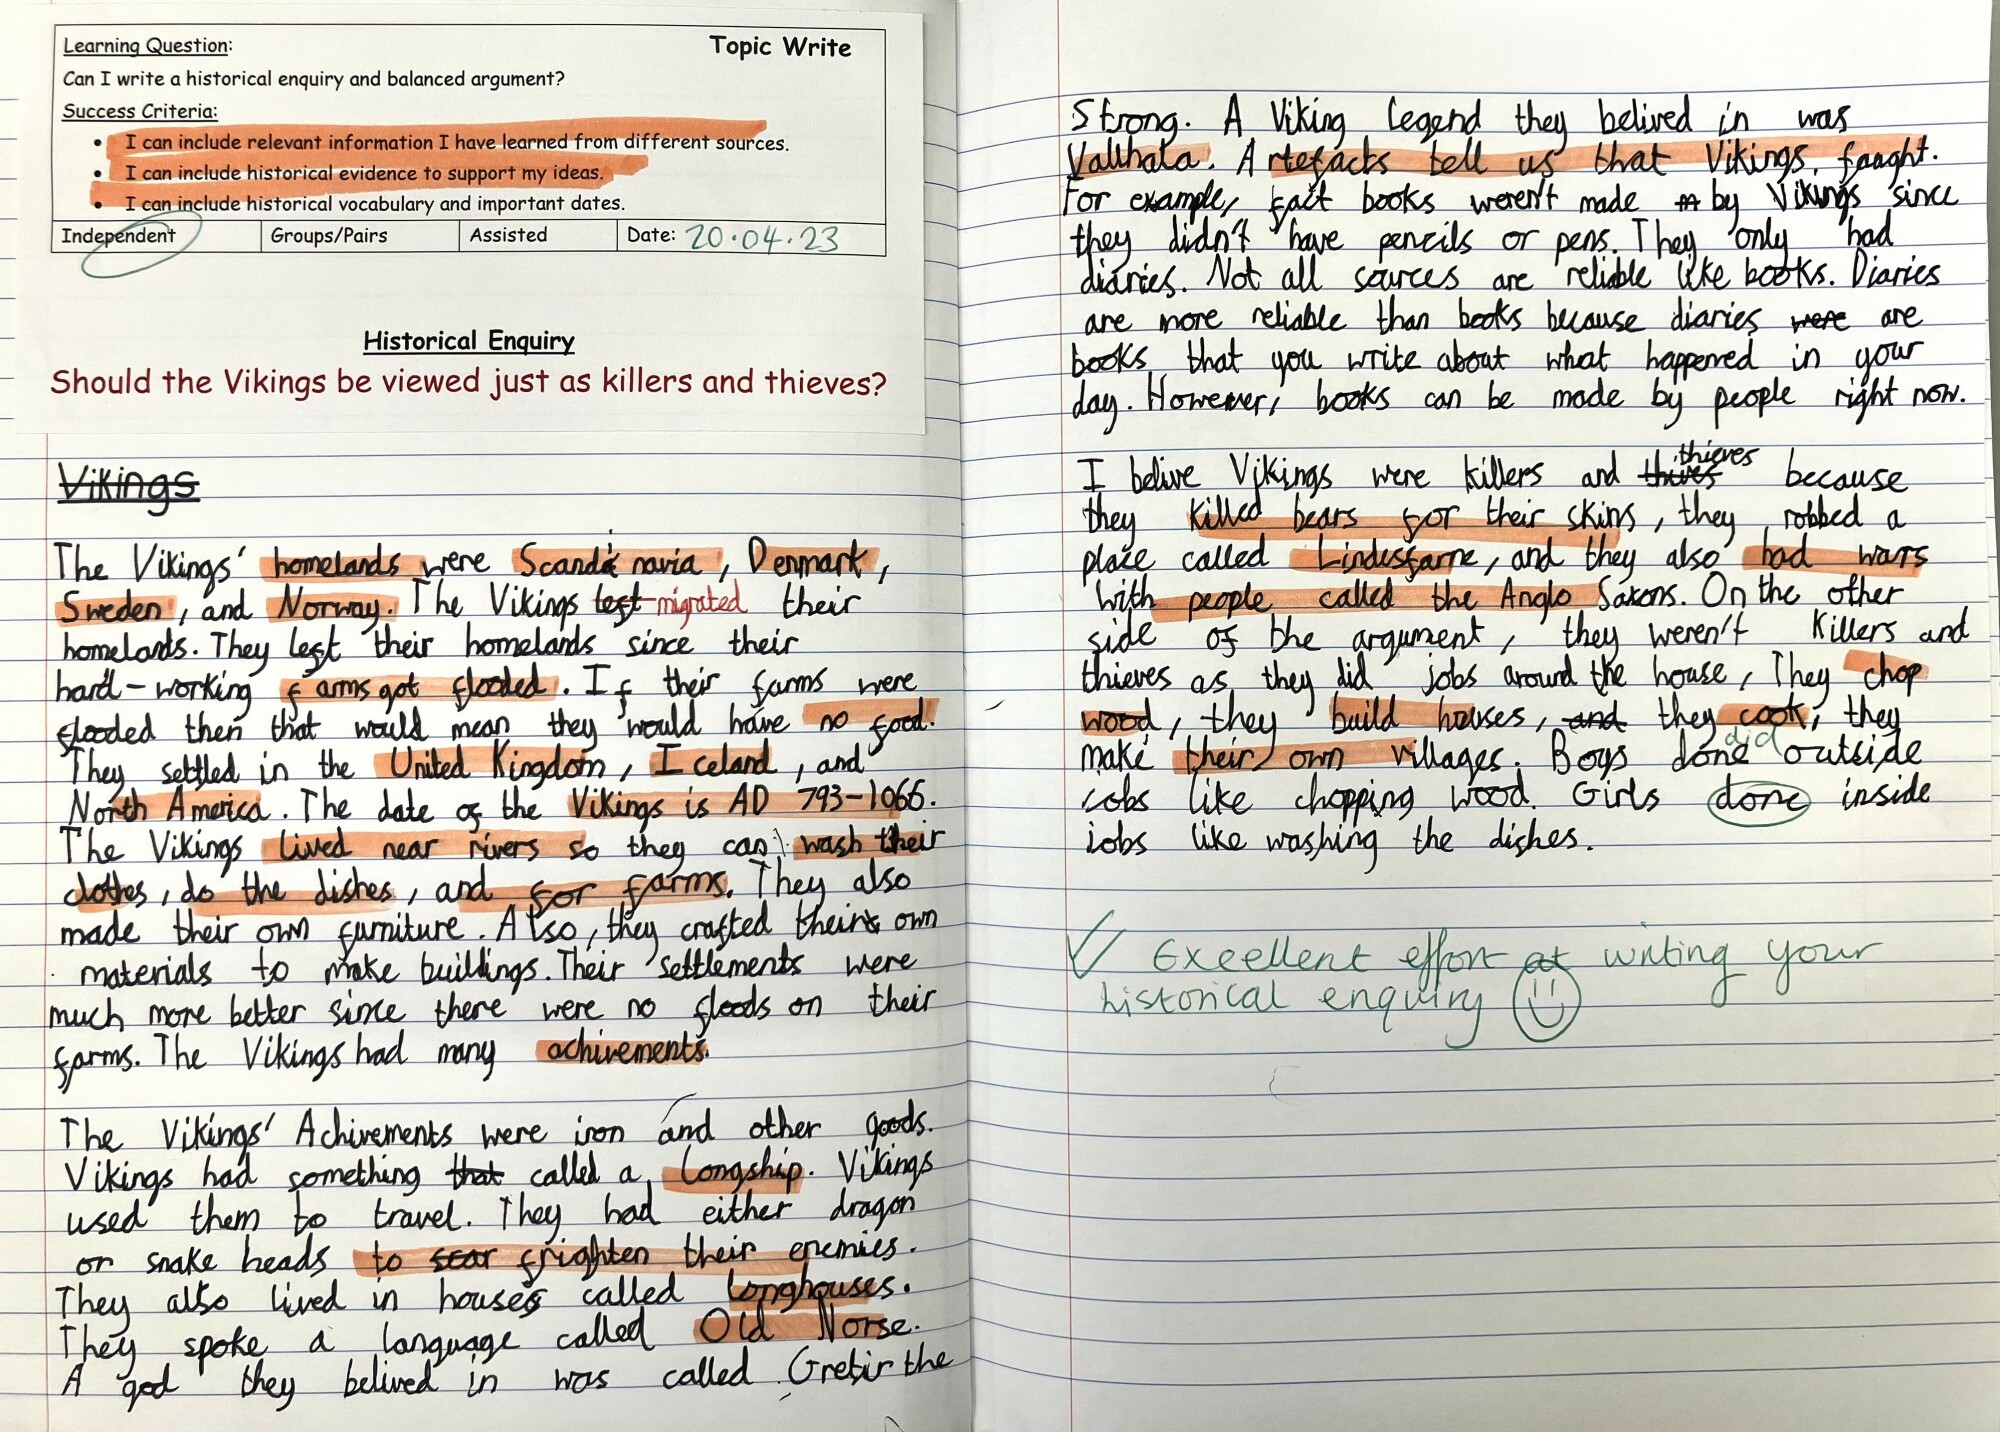 Learning Question:
Topic Write
Can I write a historical enquiry and balanced argument?
Success Criteria:
• I can include relevant information I have learned from different sources.
• I can include historical evidence to support my ideas.
• I can include historical vocabulary and important dates.
Independent Groups/Pairs Assisted Date: 20.04.23
Historical Enquiry
Should the Vikings be viewed just as killers and thieves?
Vikings
The Vikings' homelands were Scandinavia, Denmark,
Sweden, and Norway. The Vikings left migrated their
homelands. They left their homelands since their
hard-working farms got flooded. If their farms were
flooded then that would mean they would have no food.
They settled in the United Kingdom, Iceland, and
North America. The date of the Vikings is AD 793-1066.
The Vikings lived near rivers so they can wash their
clothes, do the dishes, and for farms. They also
made their own furniture. Also, they crafted their own
materials to make buildings. Their settlements were
much more better since there were no floods on their
farms. The Vikings had many achivements.
The Vikings' Achivements were iron and other goods.
Vikings had something that called a Longship. Vikings
used them to travel. They had either dragon
or snake heads to scar frighten their enemies.
They also lived in houses called longhouses.
They spoke a language called Old Norse.
A god they belived in was called Gretir the
Strong. A Viking legend they belived in was
Valhala. Artefacts tell us that Vikings fought.
For example, fact books weren't made by Vikings since
they didn't have pencils or pens. They only had
diaries. Not all sources are reliable like books. Diaries
are more reliable than books because diaries were are
books that you write about what happened in your
day. However, books can be made by people right now.
thieves
I belive Vikings were killers and thives because
they killed bears for their skins, they robbed a
place called Lindesfarne, and they also had wars
with people called the Anglo Saxons. On the other
side of the argument, they weren't killers and
thieves as they did jobs around the house, They chop
wood, they build houses, and they cook, they
did
make their own villages. Boys done outside
jobs like chopping wood. Girls done inside
jobs like washing the dishes.
✓ Excellent effort at writing your
historical enquiry